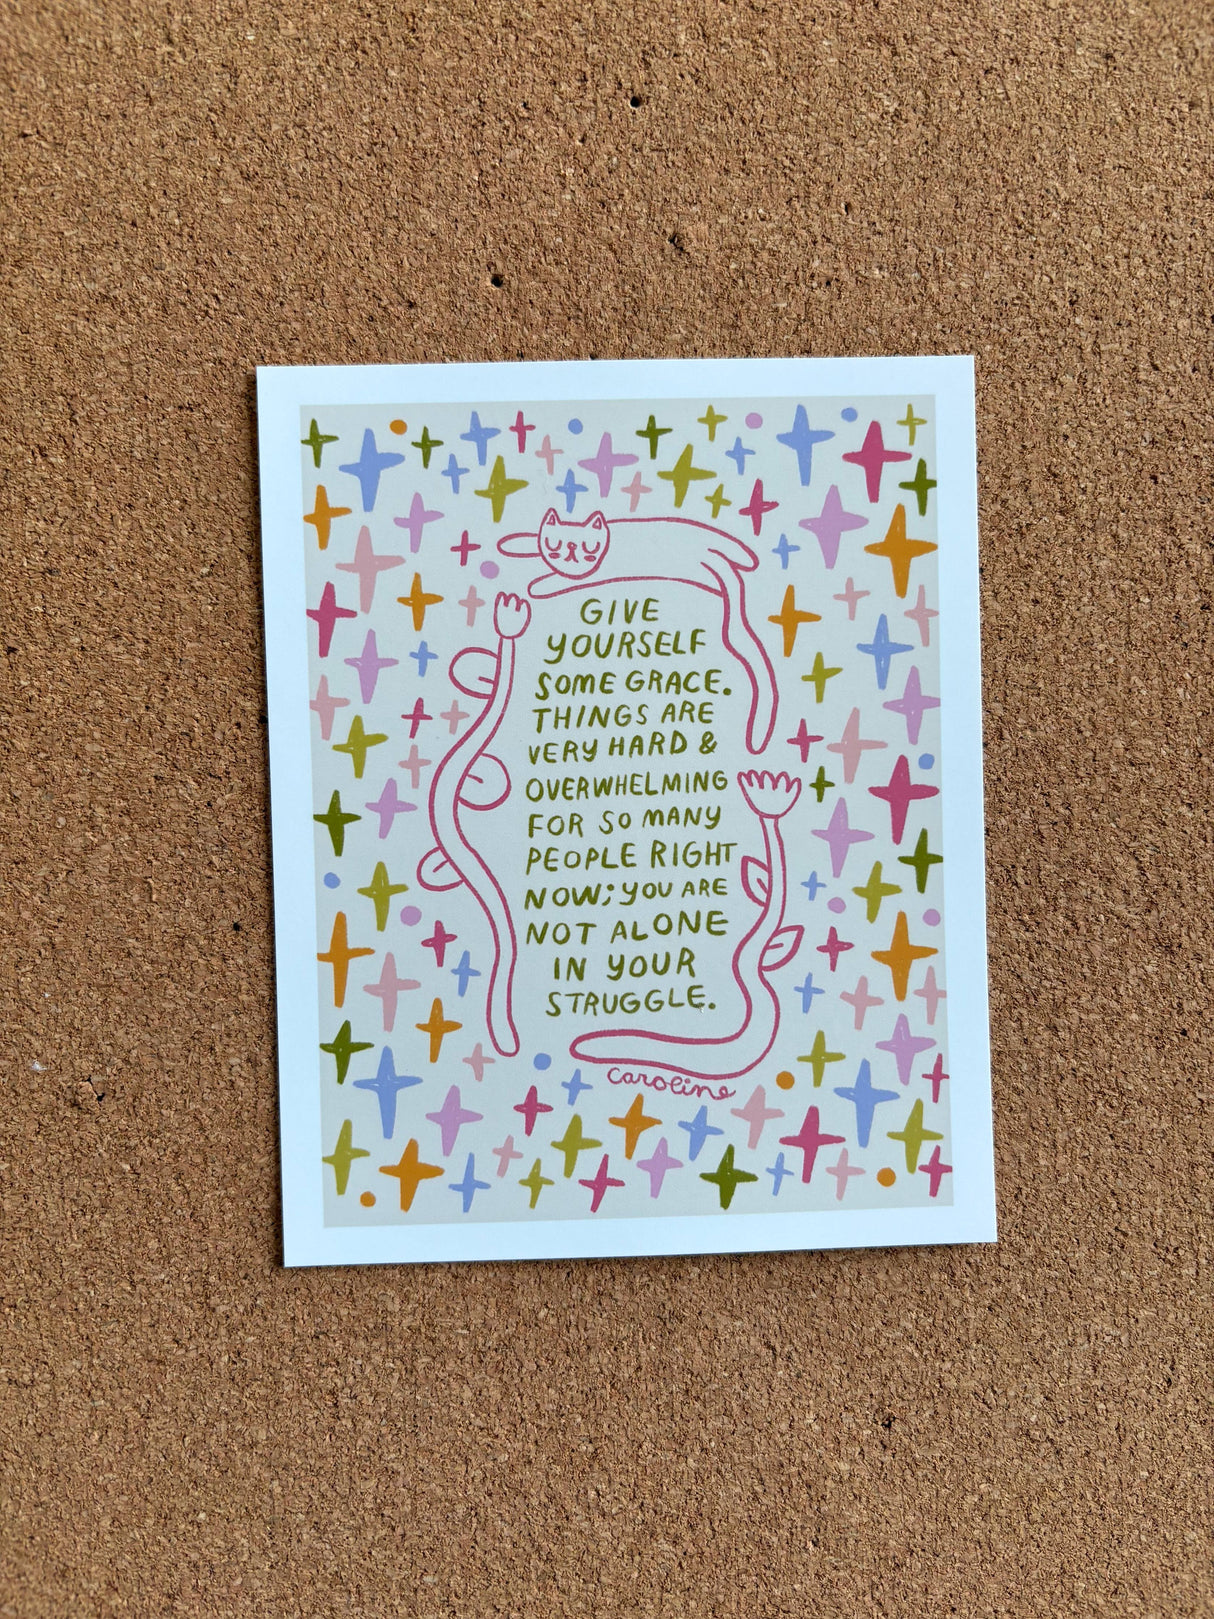 GIVE
YOURSELF
SOME GRACE.
THINGS ARE
VERY HARD &
OVERWHELMING
FOR SO MANY
PEOPLE RIGHT
NOW; YOU ARE
NOT ALONE
IN YOUR
STRUGGLE.
Caroline